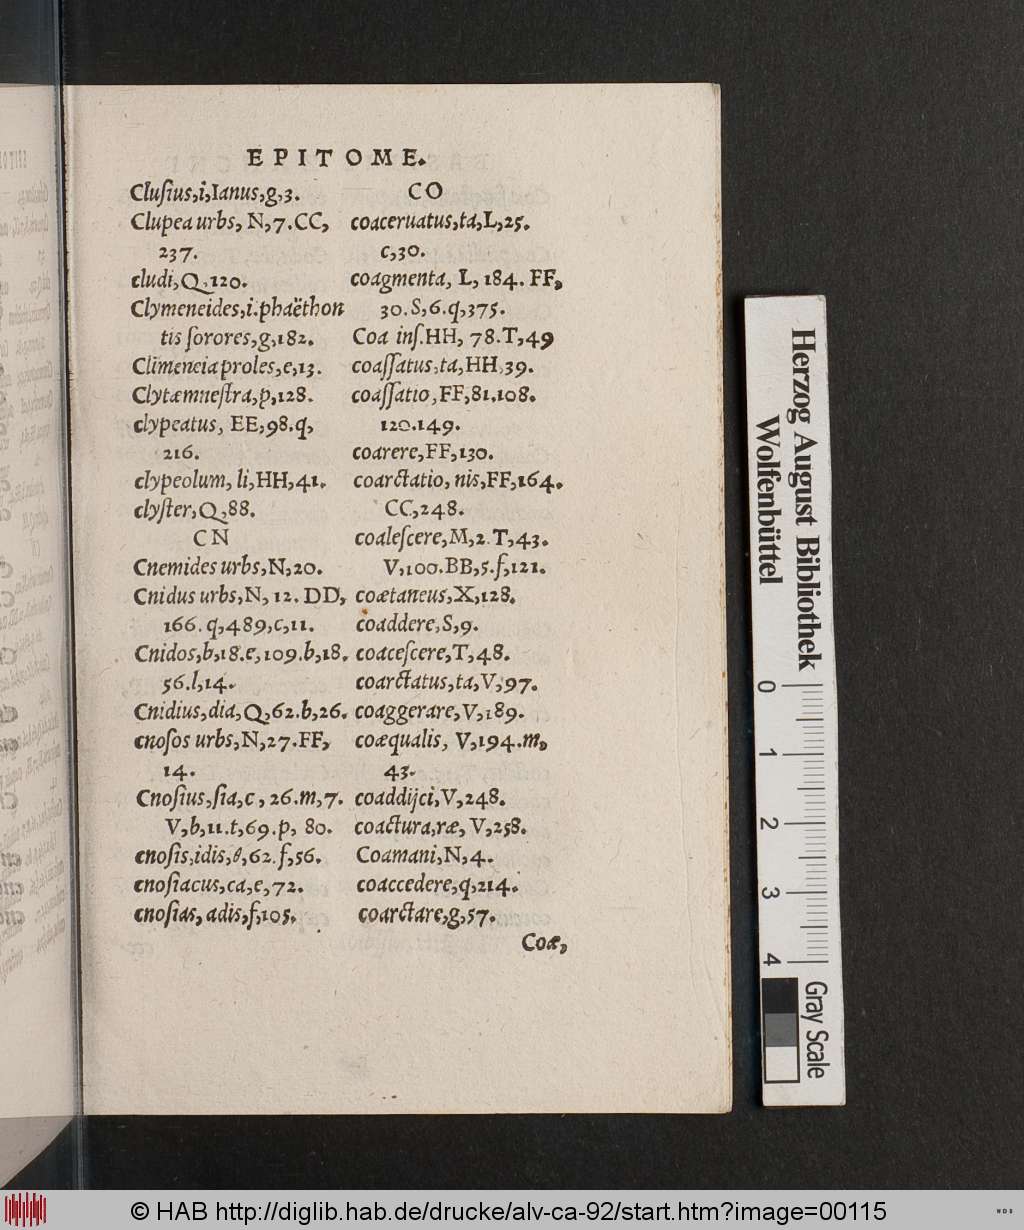 EPITOME.
Cluſius,i,Ianus,g,3.
Clupea urbs, N,7.CC,
237.
cludi,Q,120.
Clymeneides,i.phaëthon
tis ſorores,g,182.
Climeneia proles,e,13.
Clytæmneſtra,p,128.
clypeatus, EE,98.q,
216.
clypeolum, li,HH,41.
clyſter,Q,88.
CN
Cnemides urbs,N,20.
Cnidus urbs,N, 12. DD,
166.q,489,c,11.
Cnidos,b,18.e,109.b,18.
56.l,14.
Cnidius,dia,Q,62.b,26.
cnoſos urbs,N,27.FF,
14.
Cnoſius,ſia,c, 26.m,7.
V,b,11.t,69.p, 80.
cnoſis,idis,e,62.f,56.
cnoſiacus,ca,e,72.
cnoſias, adis,f,105.
CO
coaceruatus,ta,L,25.
c,30.
coagmenta, L, 184. FF,
30.S,6.q,375.
Coa inſ.HH, 78.T,49
coaſſatus,ta,HH,39.
coaſſatio,FF,81.108.
120.149.
coarere,FF,130.
coarctatio, nis,FF,164.
CC,248.
coaleſcere,M,2.T,43.
V,100.BB,5.f,121.
coætaneus,X,128.
coaddere,S,9.
coaceſcere,T,48.
coarctatus,ta,V,97.
coaggerare,V,189.
coæqualis, V,194.m,
43.
coaddijci,V,248.
coactura,ræ, V,258.
Coamani,N,4.
coaccedere,q,214.
coarctare,g,57.
Coæ,
Herzog August Bibliothek
Wolfenbüttel
0 1 2 3 4
Gray Scale
© HAB http://diglib.hab.de/drucke/alv-ca-92/start.htm?image=00115
WDB